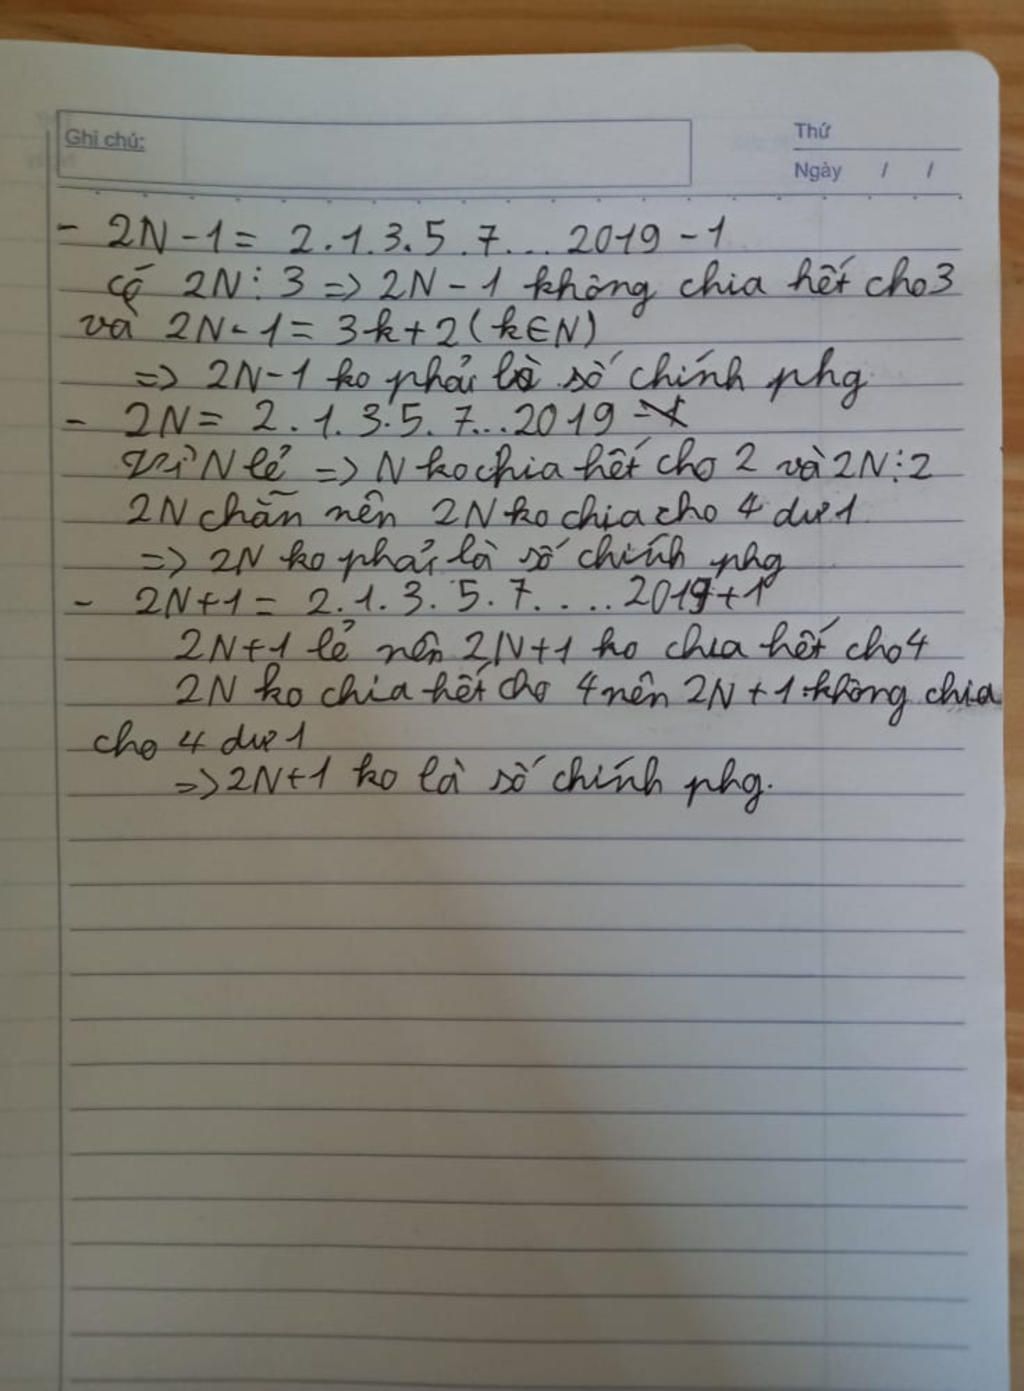 Ghi chú:
Thứ
Ngày / /
- 2N-1 = 2.1.3.5.7... 2019-1
có 2N⋮3 => 2N-1 không chia hết cho 3
và 2N-1 = 3k+2 (k∈N)
=> 2N-1 ko phải là số chính phg
- 2N = 2.1.3.5.7...2019
Vì N lẻ => N ko chia hết cho 2 và 2N⋮2
2N chẵn nên 2N ko chia cho 4 dư 1
=> 2N ko phải là số chính phg
- 2N+1 = 2.1.3.5.7....2019+1
2N+1 lẻ nên 2N+1 ko chia hết cho 4
2N ko chia hết cho 4 nên 2N+1 không chia
cho 4 dư 1
=> 2N+1 ko là số chính phg.